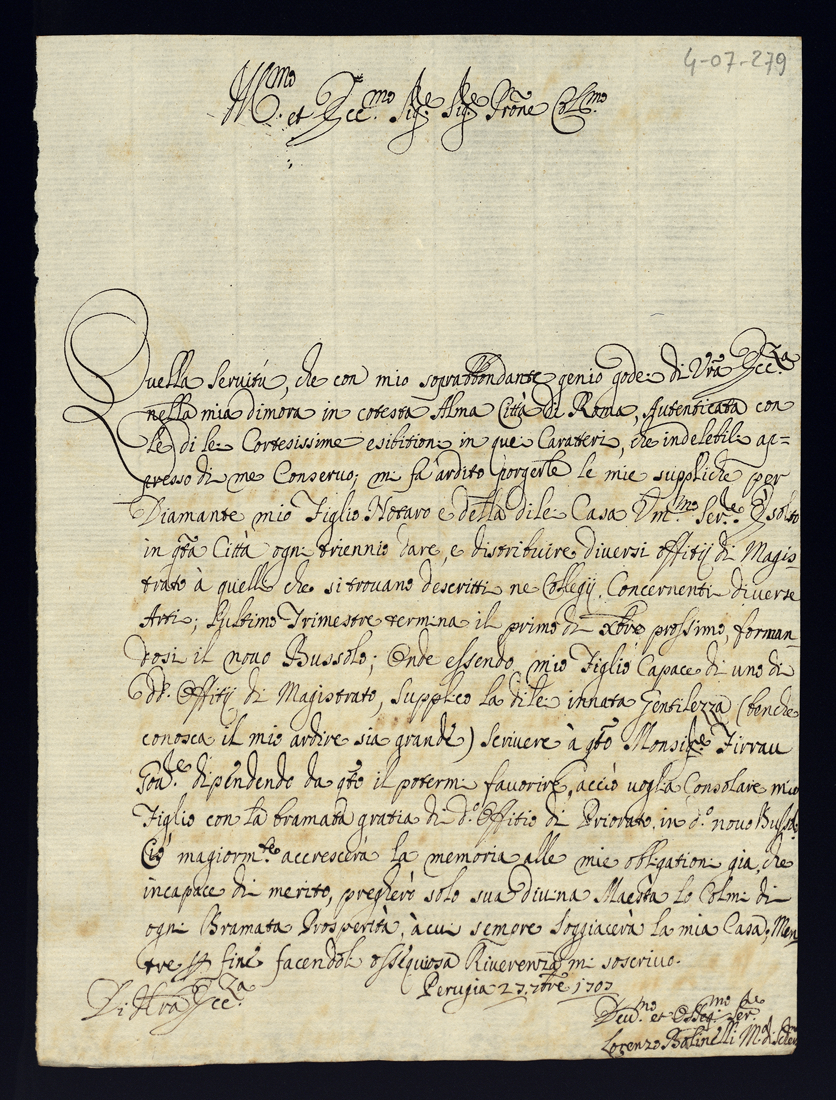 4-07-279
Ill.mo et Ecc.mo Sig.re Sig.re Prone Col.mo
Quella Seruitù, che con mio soprabbondante genio gode: di Vrã Ecc.za
nella mia dimora in cotesta Alma Città di Roma, Autenticata con
le di lei Cortesissime esibitioni in que Caratteri, che indelebili ap=
presso di me Conseruo; mi fà ardito porgerle le mie suppliche per
Diamante mio Figlio Notaro e della di lei Casa Vm.mo Ser.re È solito
in qta Città ogni triennio dare, e distribuire diversi offitij di Magis=
trato à quelli che si trouano descritti ne Collegij Concernenti diuerse
Arti; l'ultimo Trimestre termina il primo di xbre prossimo, forman=
dosi il nouo Bussolo; Onde essendo mio Figlio Capace di uno di
di Offitij di Magistrato, supplico la di lei innata Gentilezza (benche
conosca il mio ardire sia grande) scriuere à qto Monsig.re Firrau
Gou.re dipendendo da qto il potermi fauorire, acciò voglia Consolare mio
Figlio con la bramata gratia di d.o Offitio di Priorato in d.o nouo Bussolo
Ciò magiorm.te accrescerà la memoria alle mie obligationi già, che
incapace di merito, pregherò solo sua diuina Maestà lo Colmi di
ogni Bramata Prosperità, à cui sempre soggiacerà la mia Casa; Men
tre p fine facendoli ossequiosa Riuerenza mi soscriuo.
Perugia 27. 7bre 1707
Di Vra Ecc.za
Deu.mo et Osseq.mo Ser.re
Lorenzo Batinelli